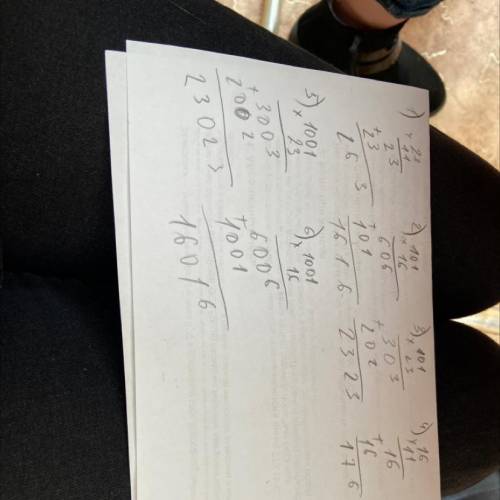 1) x 23
11
23
+ 23
253
2) x 101
16
606
+ 101
1616
3) x 101
23
303
+ 202
2323
4) x 16
11
16
+ 16
176
5) x 1001
23
3003
+ 2002
23023
6) x 1001
16
6006
+ 1001
16016